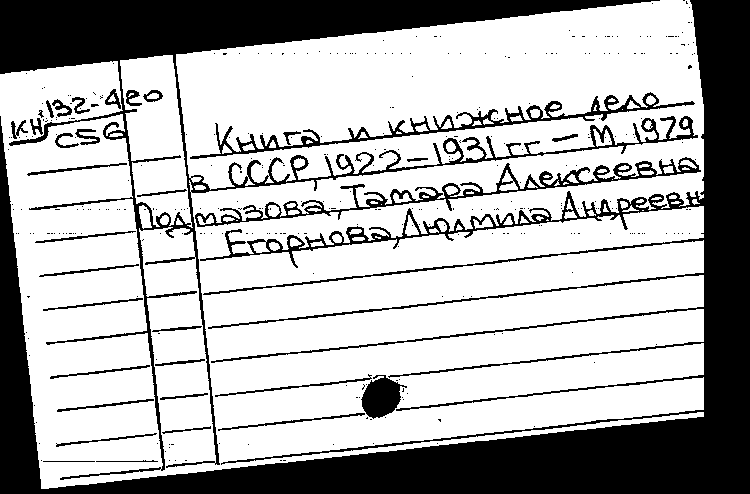 132-4/20
КН
С56
Книга и книжное дело
в СССР, 1922-1931 гг. - М, 1979.
Подмазова, Тамара Алексеевна,
Егорнова, Людмила Андреевн